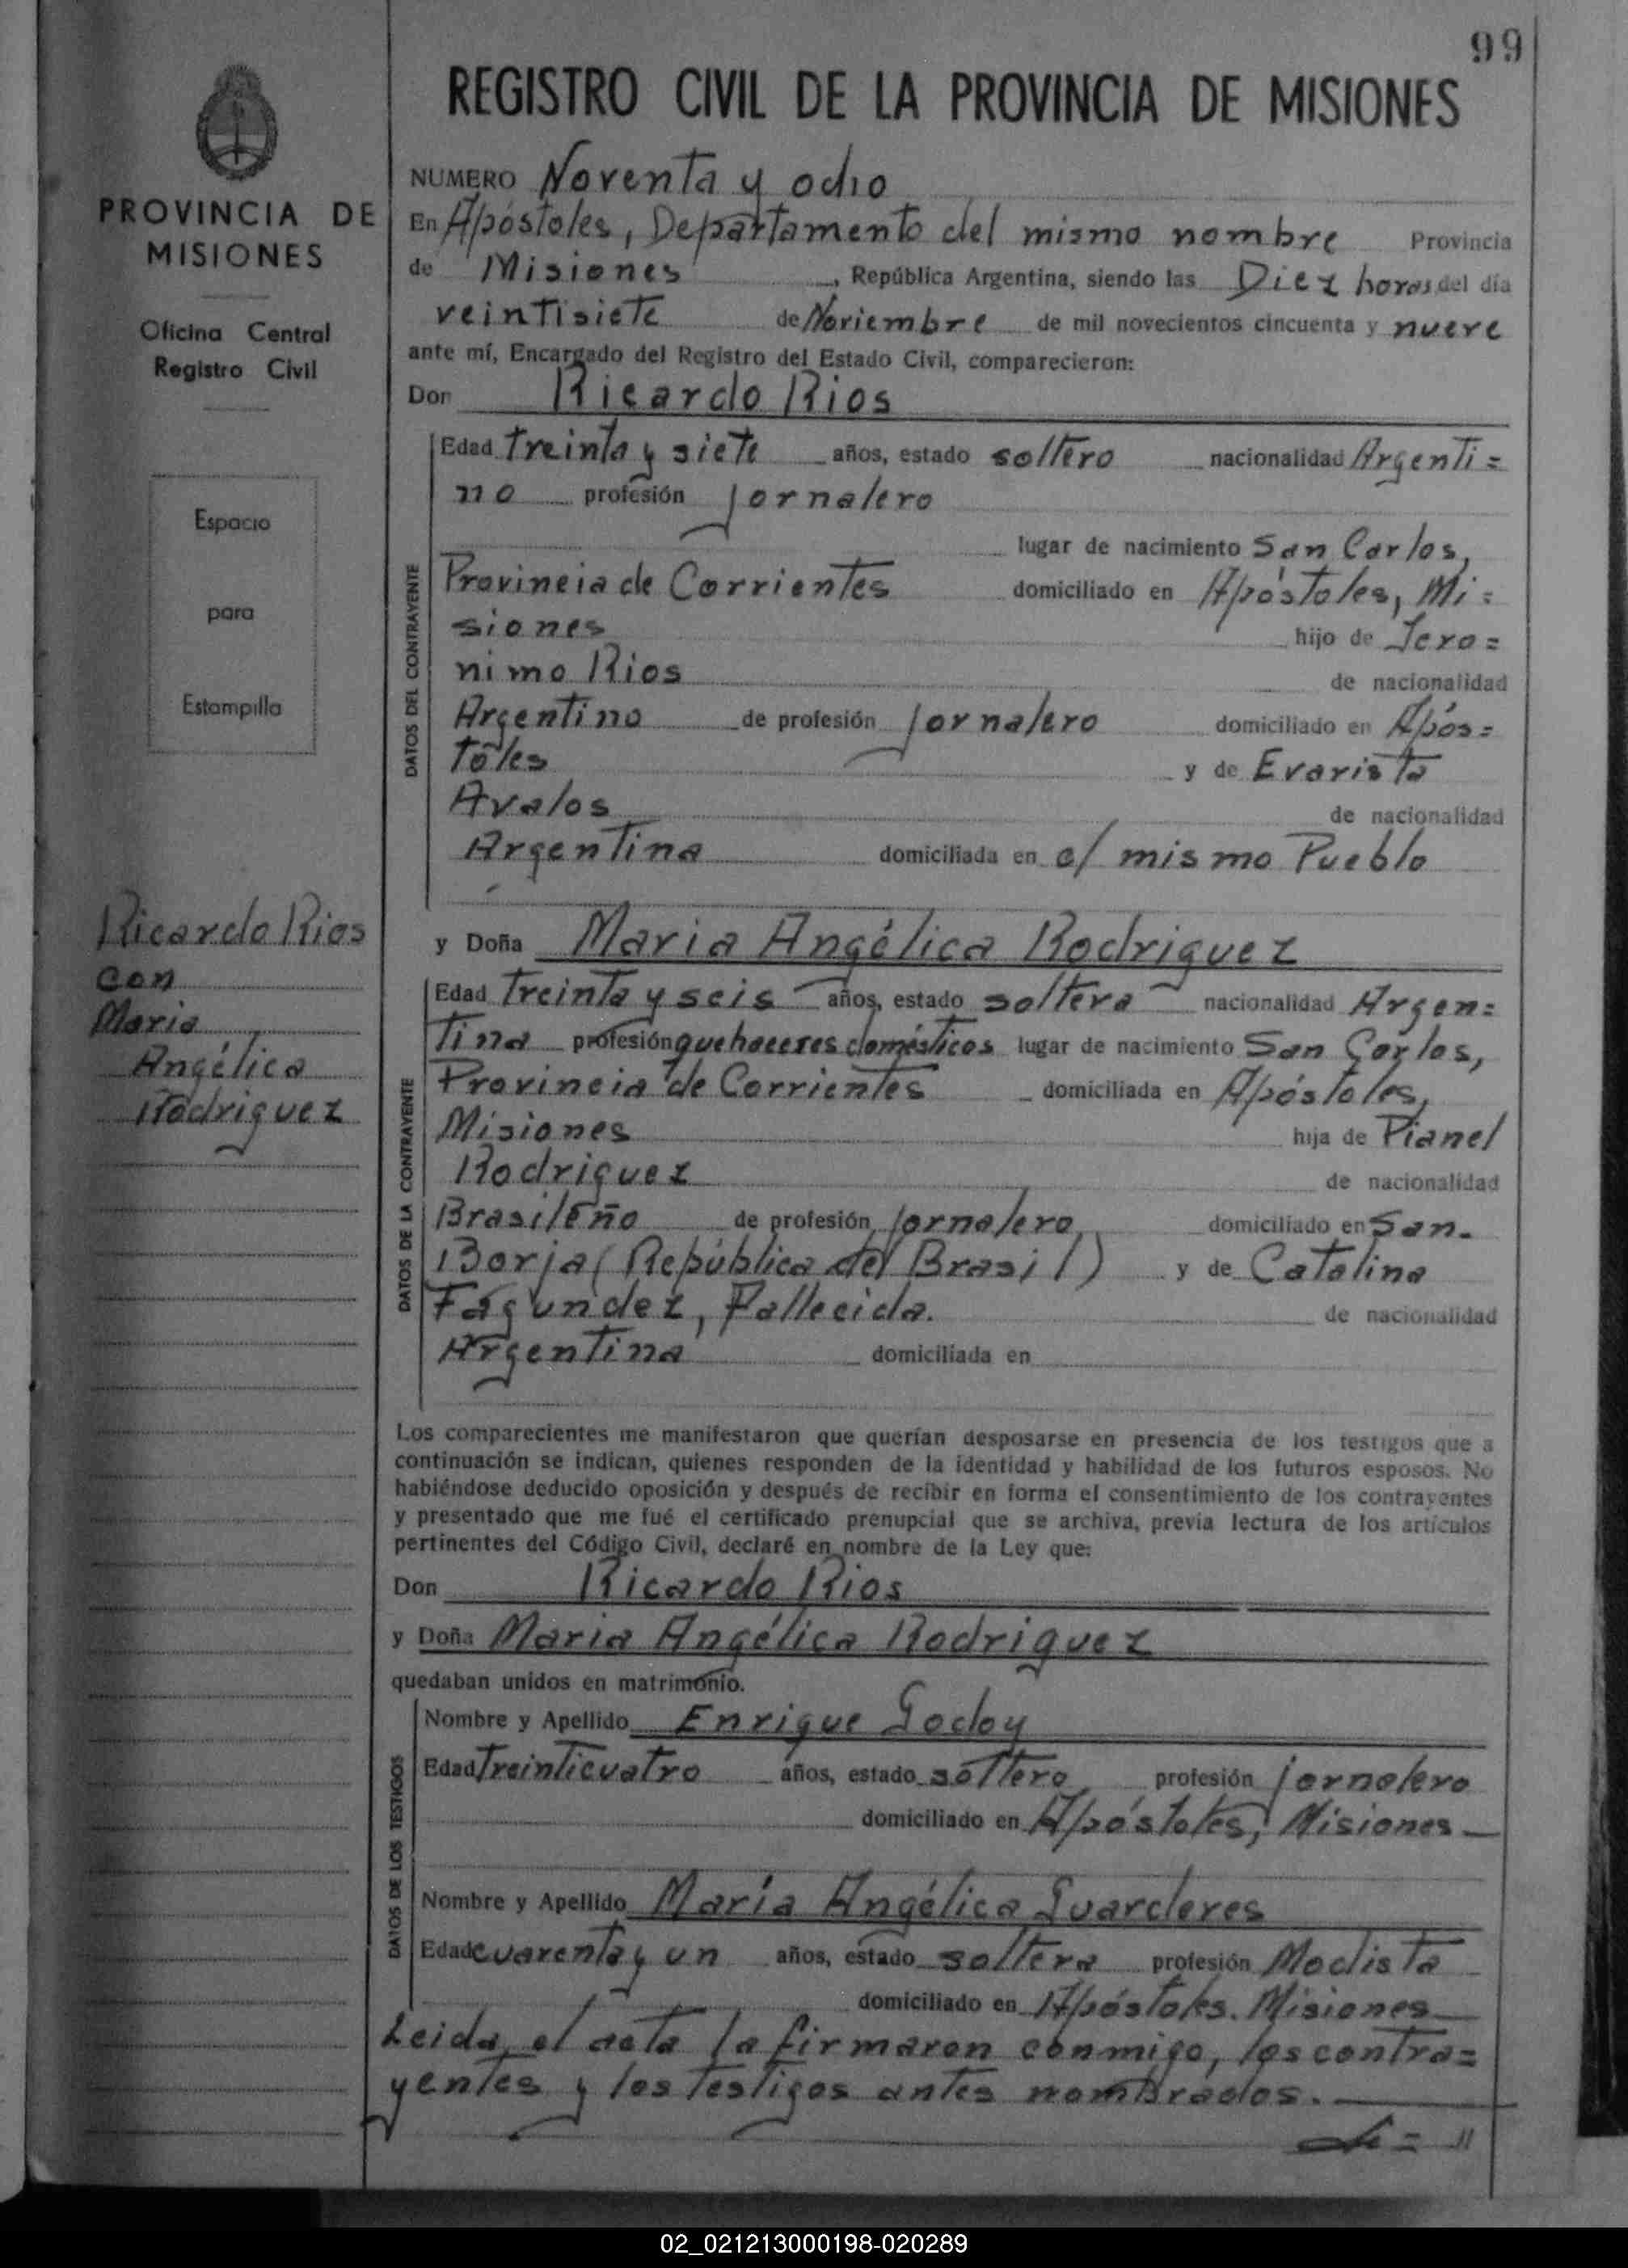 99
REGISTRO CIVIL DE LA PROVINCIA DE MISIONES
PROVINCIA DE
MISIONES
Oficina Central
Registro Civil
Espacio
para
Estampilla
Ricardo Rios
con
Maria
Angélica
Rodriguez
NUMERO Noventa y ocho
En Apóstoles, Departamento del mismo nombre Provincia
de Misiones, República Argentina, siendo las Diez horas del día
veintisiete de Noviembre de mil novecientos cincuenta y nueve
ante mí, Encargado del Registro del Estado Civil, comparecieron:
Don Ricardo Rios
DATOS DEL CONTRAYENTE
Edad treinta y siete años, estado soltero nacionalidad Argenti=
no profesión jornalero
lugar de nacimiento San Carlos,
Provincia de Corrientes domiciliado en Apóstoles, Mi=
siones hijo de Jero=
nimo Rios de nacionalidad
Argentino de profesión jornalero domiciliado en Após=
toles y de Evarista
Avalos de nacionalidad
Argentina domiciliada en el mismo Pueblo
y Doña Maria Angélica Rodriguez
DATOS DE LA CONTRAYENTE
Edad treinta y seis años, estado soltera nacionalidad Argen=
tina profesión quehaceres domésticos lugar de nacimiento San Carlos,
Provincia de Corrientes domiciliada en Apóstoles,
Misiones hija de Pianel
Rodriguez de nacionalidad
Brasileño de profesión jornalero domiciliado en San
Borja (República del Brasil) y de Catalina
Fagundez, Fallecida. de nacionalidad
Argentina domiciliada en
Los comparecientes me manifestaron que querían desposarse en presencia de los testigos que a
continuación se indican, quienes responden de la identidad y habilidad de los futuros esposos. No
habiéndose deducido oposición y después de recibir en forma el consentimiento de los contrayentes
y presentado que me fué el certificado prenupcial que se archiva, previa lectura de los artículos
pertinentes del Código Civil, declaré en nombre de la Ley que:
Don Ricardo Rios
y Doña Maria Angélica Rodriguez
quedaban unidos en matrimonio.
DATOS DE LOS TESTIGOS
Nombre y Apellido Enrique Godoy
Edad treinticuatro años, estado soltero profesión jornalero
domiciliado en Apóstoles, Misiones
Nombre y Apellido María Angélica Guarderes
Edad cuarenta y un años, estado soltera profesión Modista
domiciliado en Apóstoles. Misiones
Leida el acta la firmaron conmigo, los contra=
yentes y los testigos antes nombrados.
02_021213000198-020289